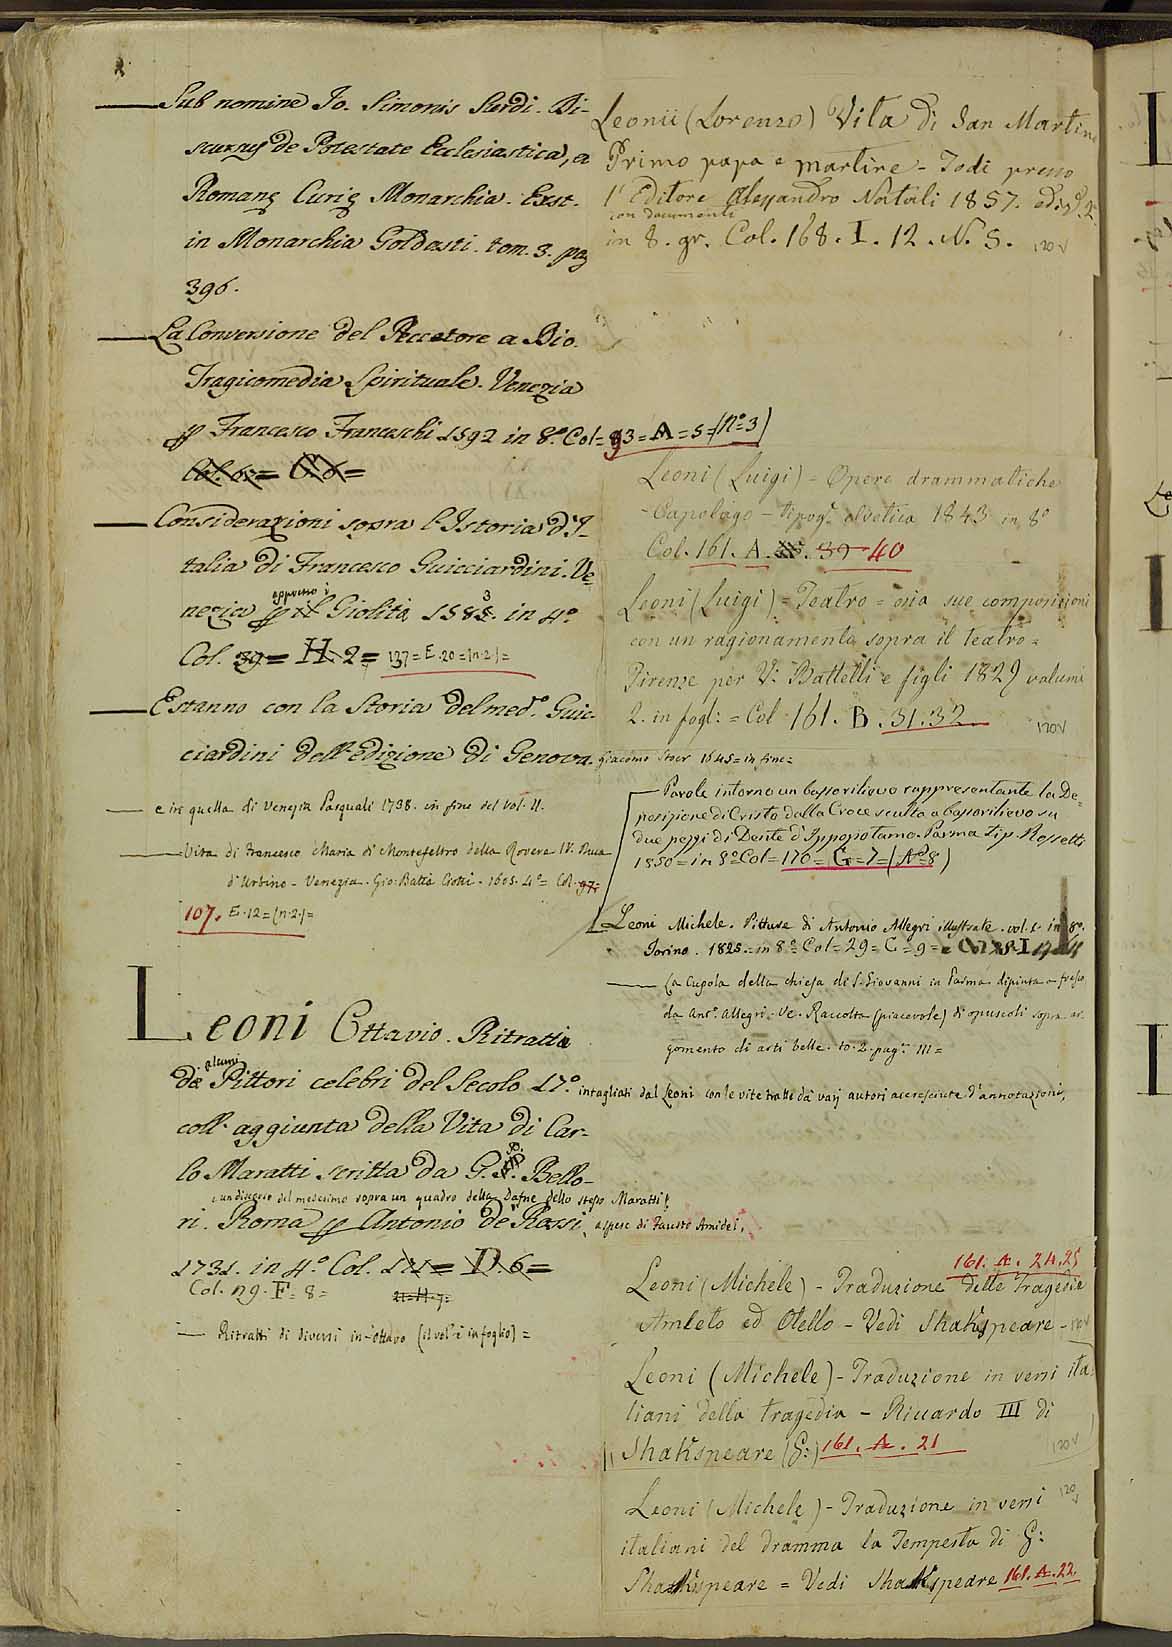 Sub nomine Jo. Simonis Sardi. Di-
scursus de Potestate Ecclesiastica, a
Romanę Curię Monarchia. Exst.
in Monarchia Goldasti. tom. 3. pag
396.
La Conversione del Peccatore a Dio.
Tragicomedia Spirituale. Venezia
p Francesco Franceschi 1592 in 8.º Col= 93=A=5=(nº 3)
Col. 6.= C. 6=
Considerazioni sopra l'Istoria d'I-
talia di Francesco Guicciardini. Ve
appresso i
nezia p il Giolita 1583. in 4º
Col. 39= H. 2= 137=E.20=(n.2.)=
Estanno con la Storia del medº. Guic-
ciardini dell'edizione di Genova. Giacomo Stoer 1645= in fine=
e in quella di Venezia Pasquali 1738. in fine del vol. II.
Vita di Francesco Maria di Montefeltro della Rovere IV. Duca
d'Urbino. Venezia. Gio: Batta Ciotti. 1605. 4º= Col. 97.
107. E.12=(n.2.)=
Leoni Ottavio. Ritratti
alcuni
de Pittori celebri del Secolo 17.º intagliati dal Leoni con le vite tratte da varj autori accresciute d'annotazioni,
coll' aggiunta della Vita di Car-
lo Maratti scritta da G. P. Bello-
e un discorso del medesimo sopra un quadro della Dafne dello stesso Maratti.
ri. Roma p Antonio de' Rossi, a spese di Fausto Amidei,
1731. in 4.º Col. = D. 6=
Col. 119. F= 8= 21=H.7=
Ritratti di diversi in ottavo (il vol. è in foglio)=
Leonii (Lorenzo) Vita di San Martino
Primo papa e martire - Todi presso
l'Editore Alessandro Natali 1857. ediz. 2ª
con documenti
in 8. gr. Col. 168. I. 12. N. 5. 120V
Leoni (Luigi) = Opere drammatiche
- Capolago - tipog. elvetica 1843 in 8º
Col. 161. A. 39 40
Leoni (Luigi) = Teatro = osia sue composizioni
con un ragionamento sopra il teatro =
Firenze per V: Battelli e figli 1829 volumi
2. in fogl: = Col 161. B. 31.32 120V
Parole intorno un bassorilievo rappresentante la De-
posizione di Cristo dalla Croce sculto a bassorilievo su
due pezzi di Dente d'Ippopotamo. Parma Tip. Rossetti
1850= in 8º Col= 176= G=7=(Nº 8)
Leoni Michele. Pitture di Antonio Allegri illustrate. vol. 1. in 8º.
Torino. 1825. in 8º Col= 29= C= 9=
La Cupola della chiesa di S. Giovanni in Parma dipinta a fresco
da Antº. Allegri. Ve. Raccolta (piacevole) di opuscoli sopra ar-
gomento di arti belle. to. 2. pag. 111=
161. A. 24.25
Leoni (Michele) - Traduzione delle tragedie
Amleto ed Otello - Vedi Shakspeare - 120V
Leoni (Michele) - Traduzione in versi ita-
liani della tragedia - Riccardo III di
Shakspeare (G:) 161. A. 21 120V
Leoni (Michele) - Traduzione in versi 120V
italiani del dramma la Tempesta di G:
Shakspeare = Vedi Shakspeare 161. A. 22.